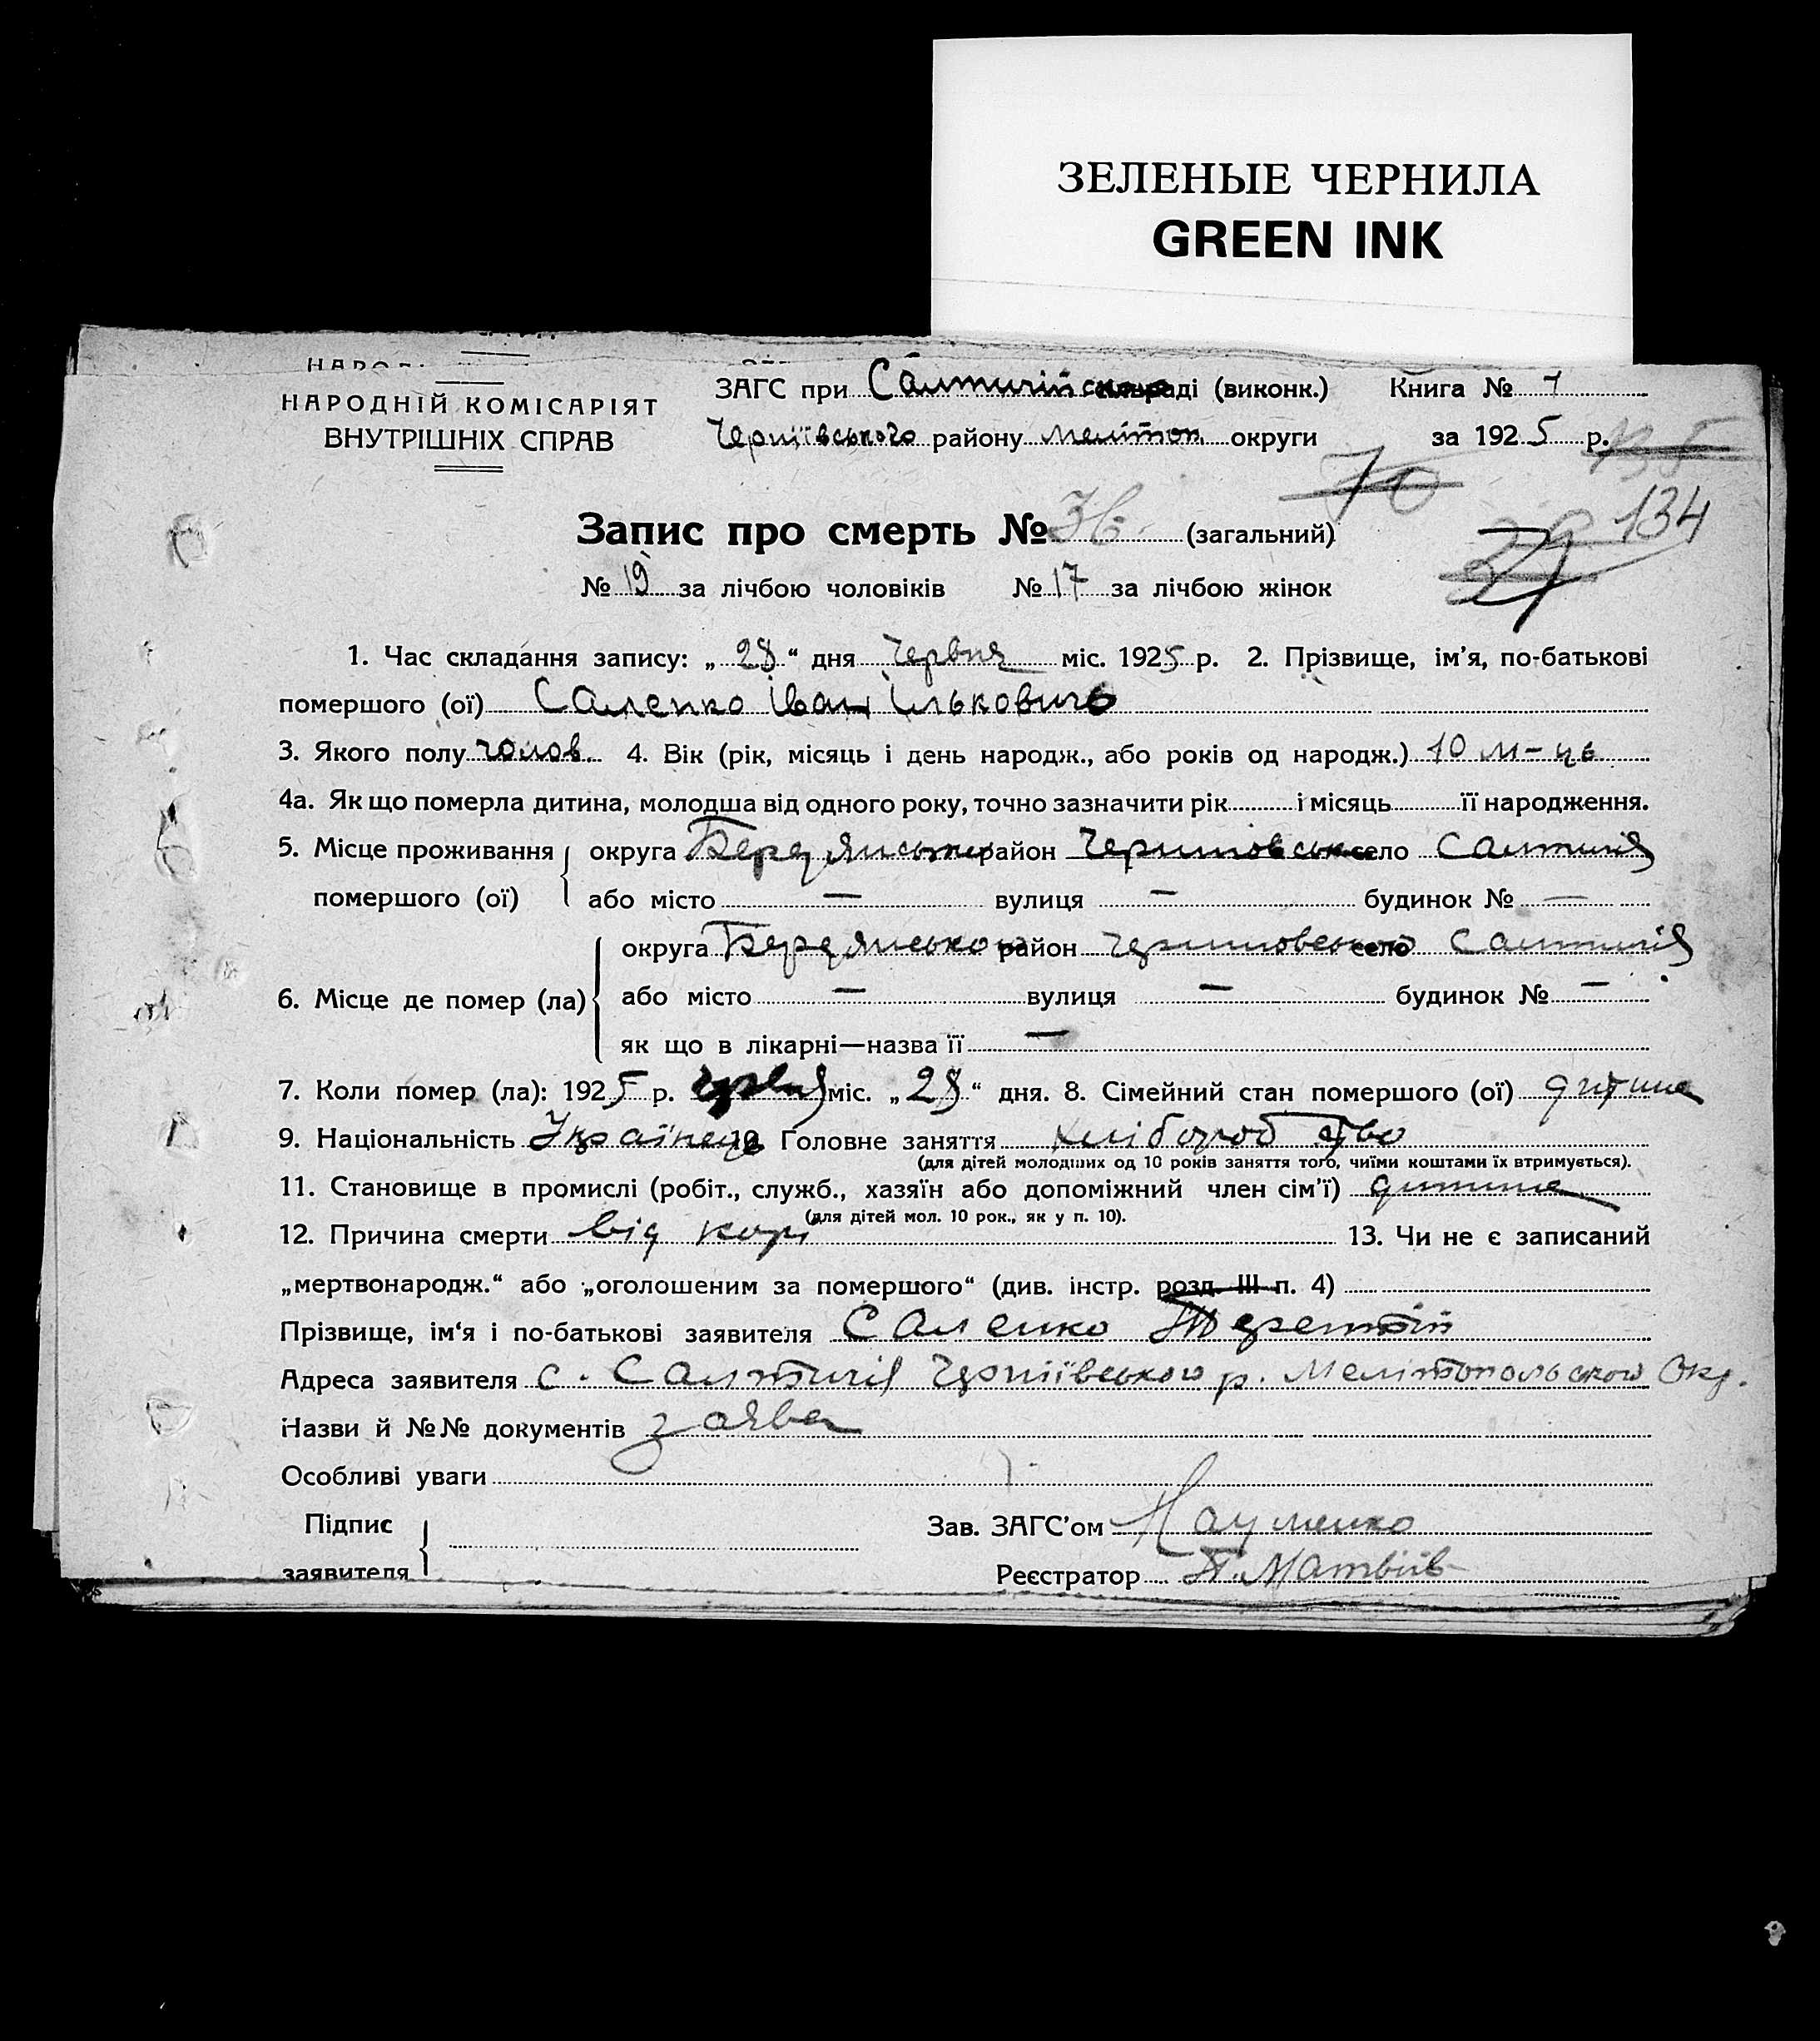 ЗЕЛЕНЫЕ ЧЕРНИЛА
GREEN INK
НАРОДНІЙ КОМІСАРІЯТ
ВНУТРІШНІХ СПРАВ
ЗАГС при Салтичійській раді (виконк.) Книга № 1
Черніївського району мелітоп. округи за 1925 р.
70
134
Запис про смерть № 36 (загальний)
№ 19 за лічбою чоловіків № 17 за лічбою жінок
1. Час складання запису: „28“ дня Червня міс. 1925 р. 2. Прізвище, ім'я, по-батькові
помершого (ої) Саленко Іван Ількович
3. Якого полу чолов. 4. Вік (рік, місяць і день народж., або років од народж.) 10 м-ць
4а. Як що померла дитина, молодша від одного року, точно зазначити рік і місяць її народження.
5. Місце проживання округа Бердянської район село Салтичія
помершого (ої) або місто — вулиця — будинок № —
округа Бердянською район село Салтичія
6. Місце де помер (ла) або місто — вулиця — будинок № —
як що в лікарні—назва її —
7. Коли помер (ла): 1925 р. червня міс. „28“ дня. 8. Сімейний стан помершого (ої) дитина
9. Національність Українець 10. Головне заняття хлібороб ство
(для дітей молодших од 10 років заняття того, чиїми коштами їх втримується).
11. Становище в промислі (робіт., служб., хазяїн або допоміжний член сім'ї) дитина
(для дітей мол. 10 рок., як у п. 10).
12. Причина смерти від корі 13. Чи не є записаний
„мертвонародж.“ або „оголошеним за помершого“ (див. інстр. розд. III п. 4)
Прізвище, ім'я і по-батькові заявителя Саленко Терентій
Адреса заявителя с. Салтичія Черніївського р. Мелітопольською Окр.
Назви й №№ документів заява
Особливі уваги
Підпис
заявителя
Зав. ЗАГС'ом Науменко
Реєстратор П. Матвіїв